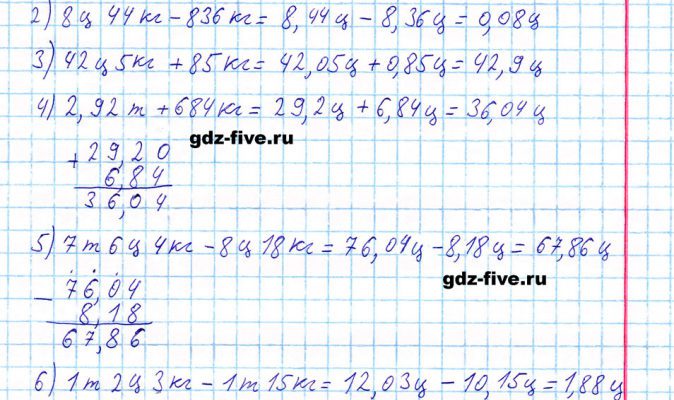 2) 8ц 44кг – 836кг = 8,44ц – 8,36ц = 0,08ц
3) 42ц 5кг + 85кг = 42,05ц + 0,85ц = 42,9ц
4) 2,92т + 684кг = 29,2ц + 6,84ц = 36,04ц
gdz-five.ru
+ 29,20
6,84
36,04
5) 7т 6ц 4кг – 8ц 18кг = 76,04ц – 8,18ц = 67,86ц
gdz-five.ru
– 76,04
8,18
67,86
6) 1т 2ц 3кг – 1т 15кг = 12,03ц – 10,15ц = 1,88ц